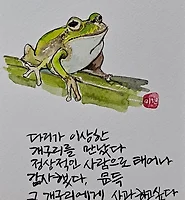 다리가 이상한
개구리를 만났다
정상적인 사람으로 태어나
감사했다. 문득
그 개구리에게 사과하고 싶다